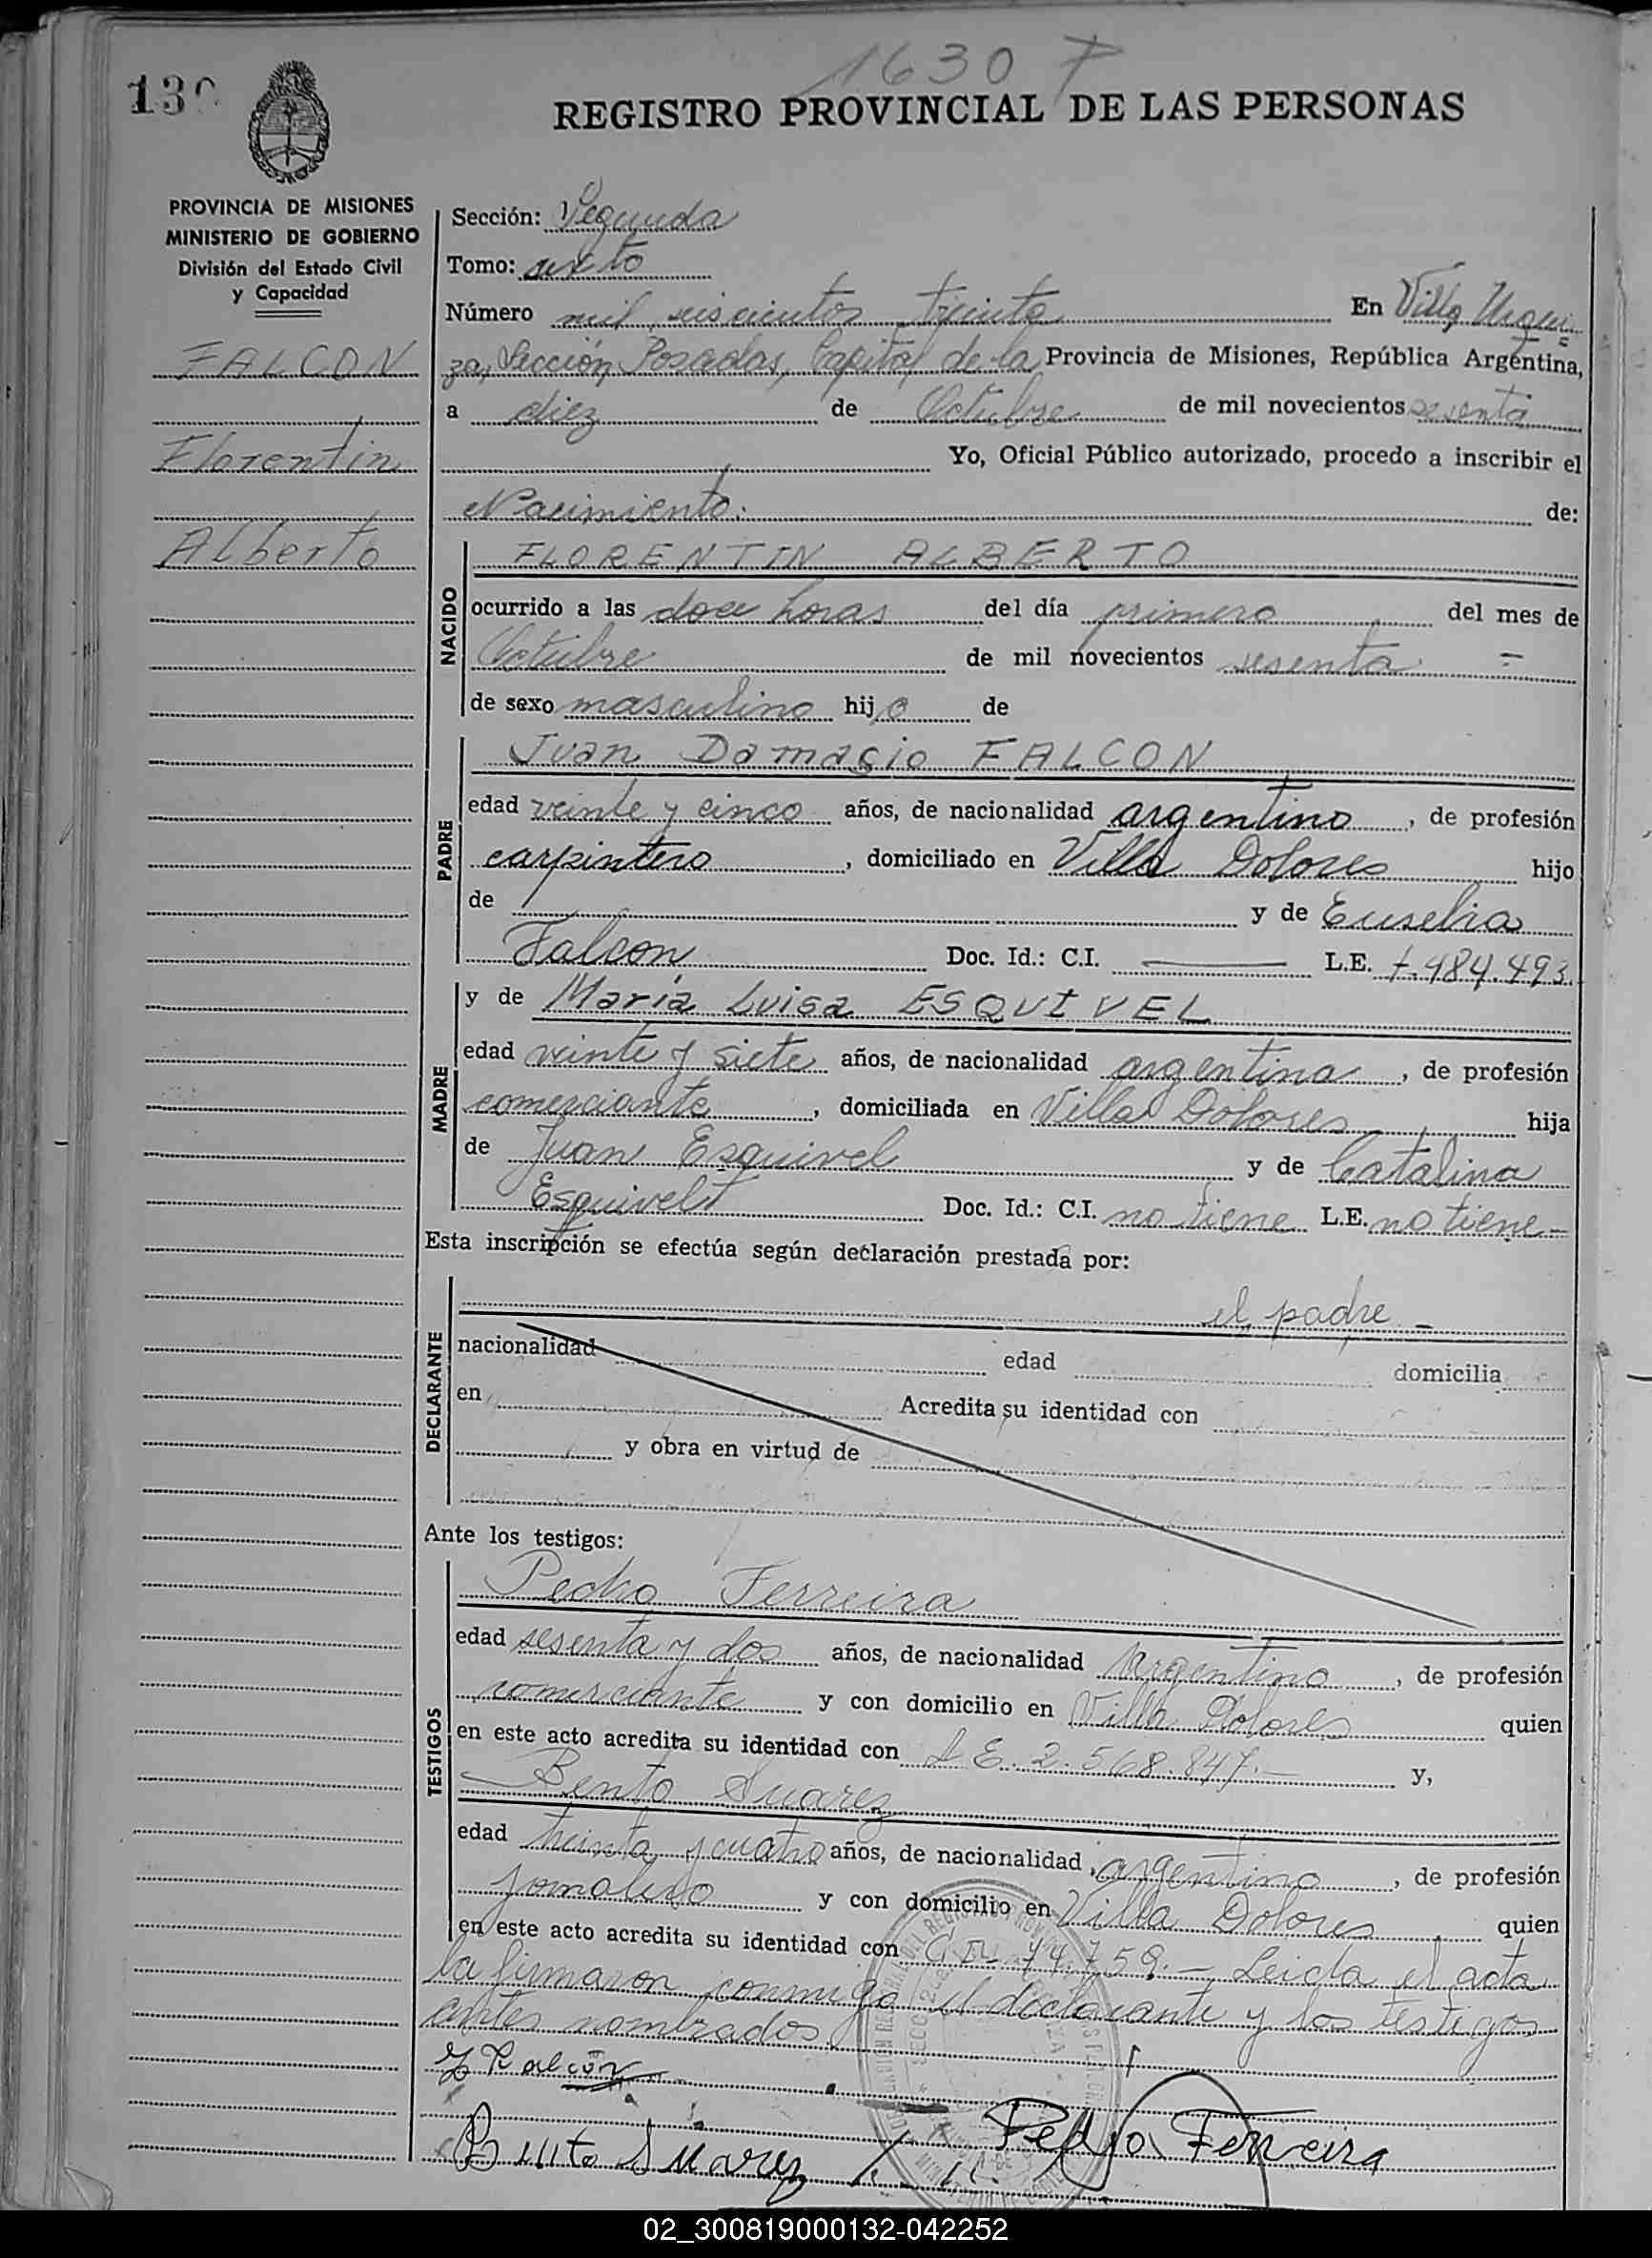 1630
130
REGISTRO PROVINCIAL DE LAS PERSONAS
PROVINCIA DE MISIONES
MINISTERIO DE GOBIERNO
División del Estado Civil
y Capacidad
FALCON
Florentin
Alberto
Sección: Segunda
Tomo: sexto
Número mil seiscientos treinta En Villa Urqui
za, Sección Posadas, Capital de la Provincia de Misiones, República Argentina,
a diez de Octubre de mil novecientos sesenta
Yo, Oficial Público autorizado, procedo a inscribir el
Nacimiento: de:
NACIDO
FLORENTIN ALBERTO
ocurrido a las doce horas del día primero del mes de
Octubre de mil novecientos sesenta =
de sexo masculino hijo de
PADRE
Juan Damasio FALCON
edad veinte y cinco años, de nacionalidad argentino, de profesión
carpintero, domiciliado en Villa Dolores hijo
de y de Eusebia
Falcon Doc. Id.: C.I. —— L.E. 7.484.493
MADRE
y de María Luisa ESQUIVEL
edad veinte y siete años, de nacionalidad argentina, de profesión
comerciante, domiciliada en Villa Dolores hija
de Juan Esquivel y de Catalina
Esquivel Doc. Id.: C.I. no tiene L.E. no tiene -
Esta inscripción se efectúa según declaración prestada por:
DECLARANTE
el padre -
nacionalidad edad domicilia
en Acredita su identidad con
y obra en virtud de
Ante los testigos:
TESTIGOS
Pedro Ferreira
edad sesenta y dos años, de nacionalidad Argentino, de profesión
comerciante y con domicilio en Villa Dolores quien
en este acto acredita su identidad con L E. 2.568.847.- y,
Bento Suarez
edad treinta y cuatro años, de nacionalidad argentino, de profesión
jornalero y con domicilio en Villa Dolores quien
en este acto acredita su identidad con 74.759.- Leida el acta
la firmaron conmigo el declarante y los testigos
antes nombrados
Falcón
Bento Suarez Pedro Ferreira
02_300819000132-042252